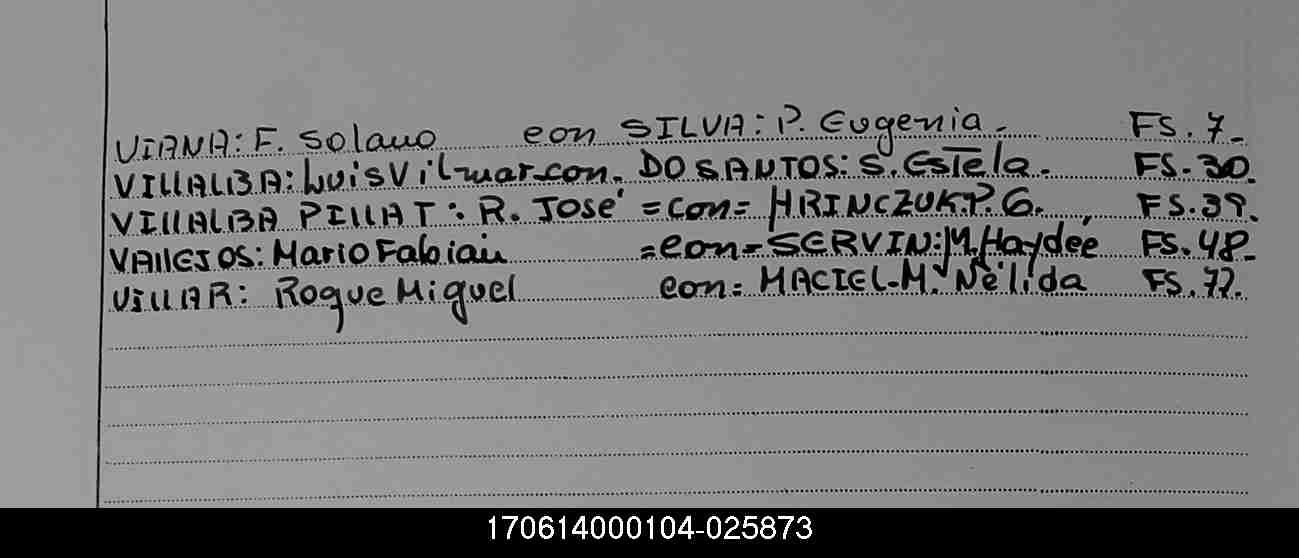 VIANA: F. Solano con SILVA: P. Eugenia. FS. 7_
VILLALBA: Luis Vilmar con. DO SANTOS: S. Estela. FS. 30.
VILLALBA PILLAT: R. José =con= HRINCZUK.P.G. FS. 39.
VALLEJOS: Mario Fabian =con= SERVIN: M. Haydée FS. 48_
VILLAR: Roque Miguel con: MACIEL-M. Nélida FS. 72.
170614000104-025873